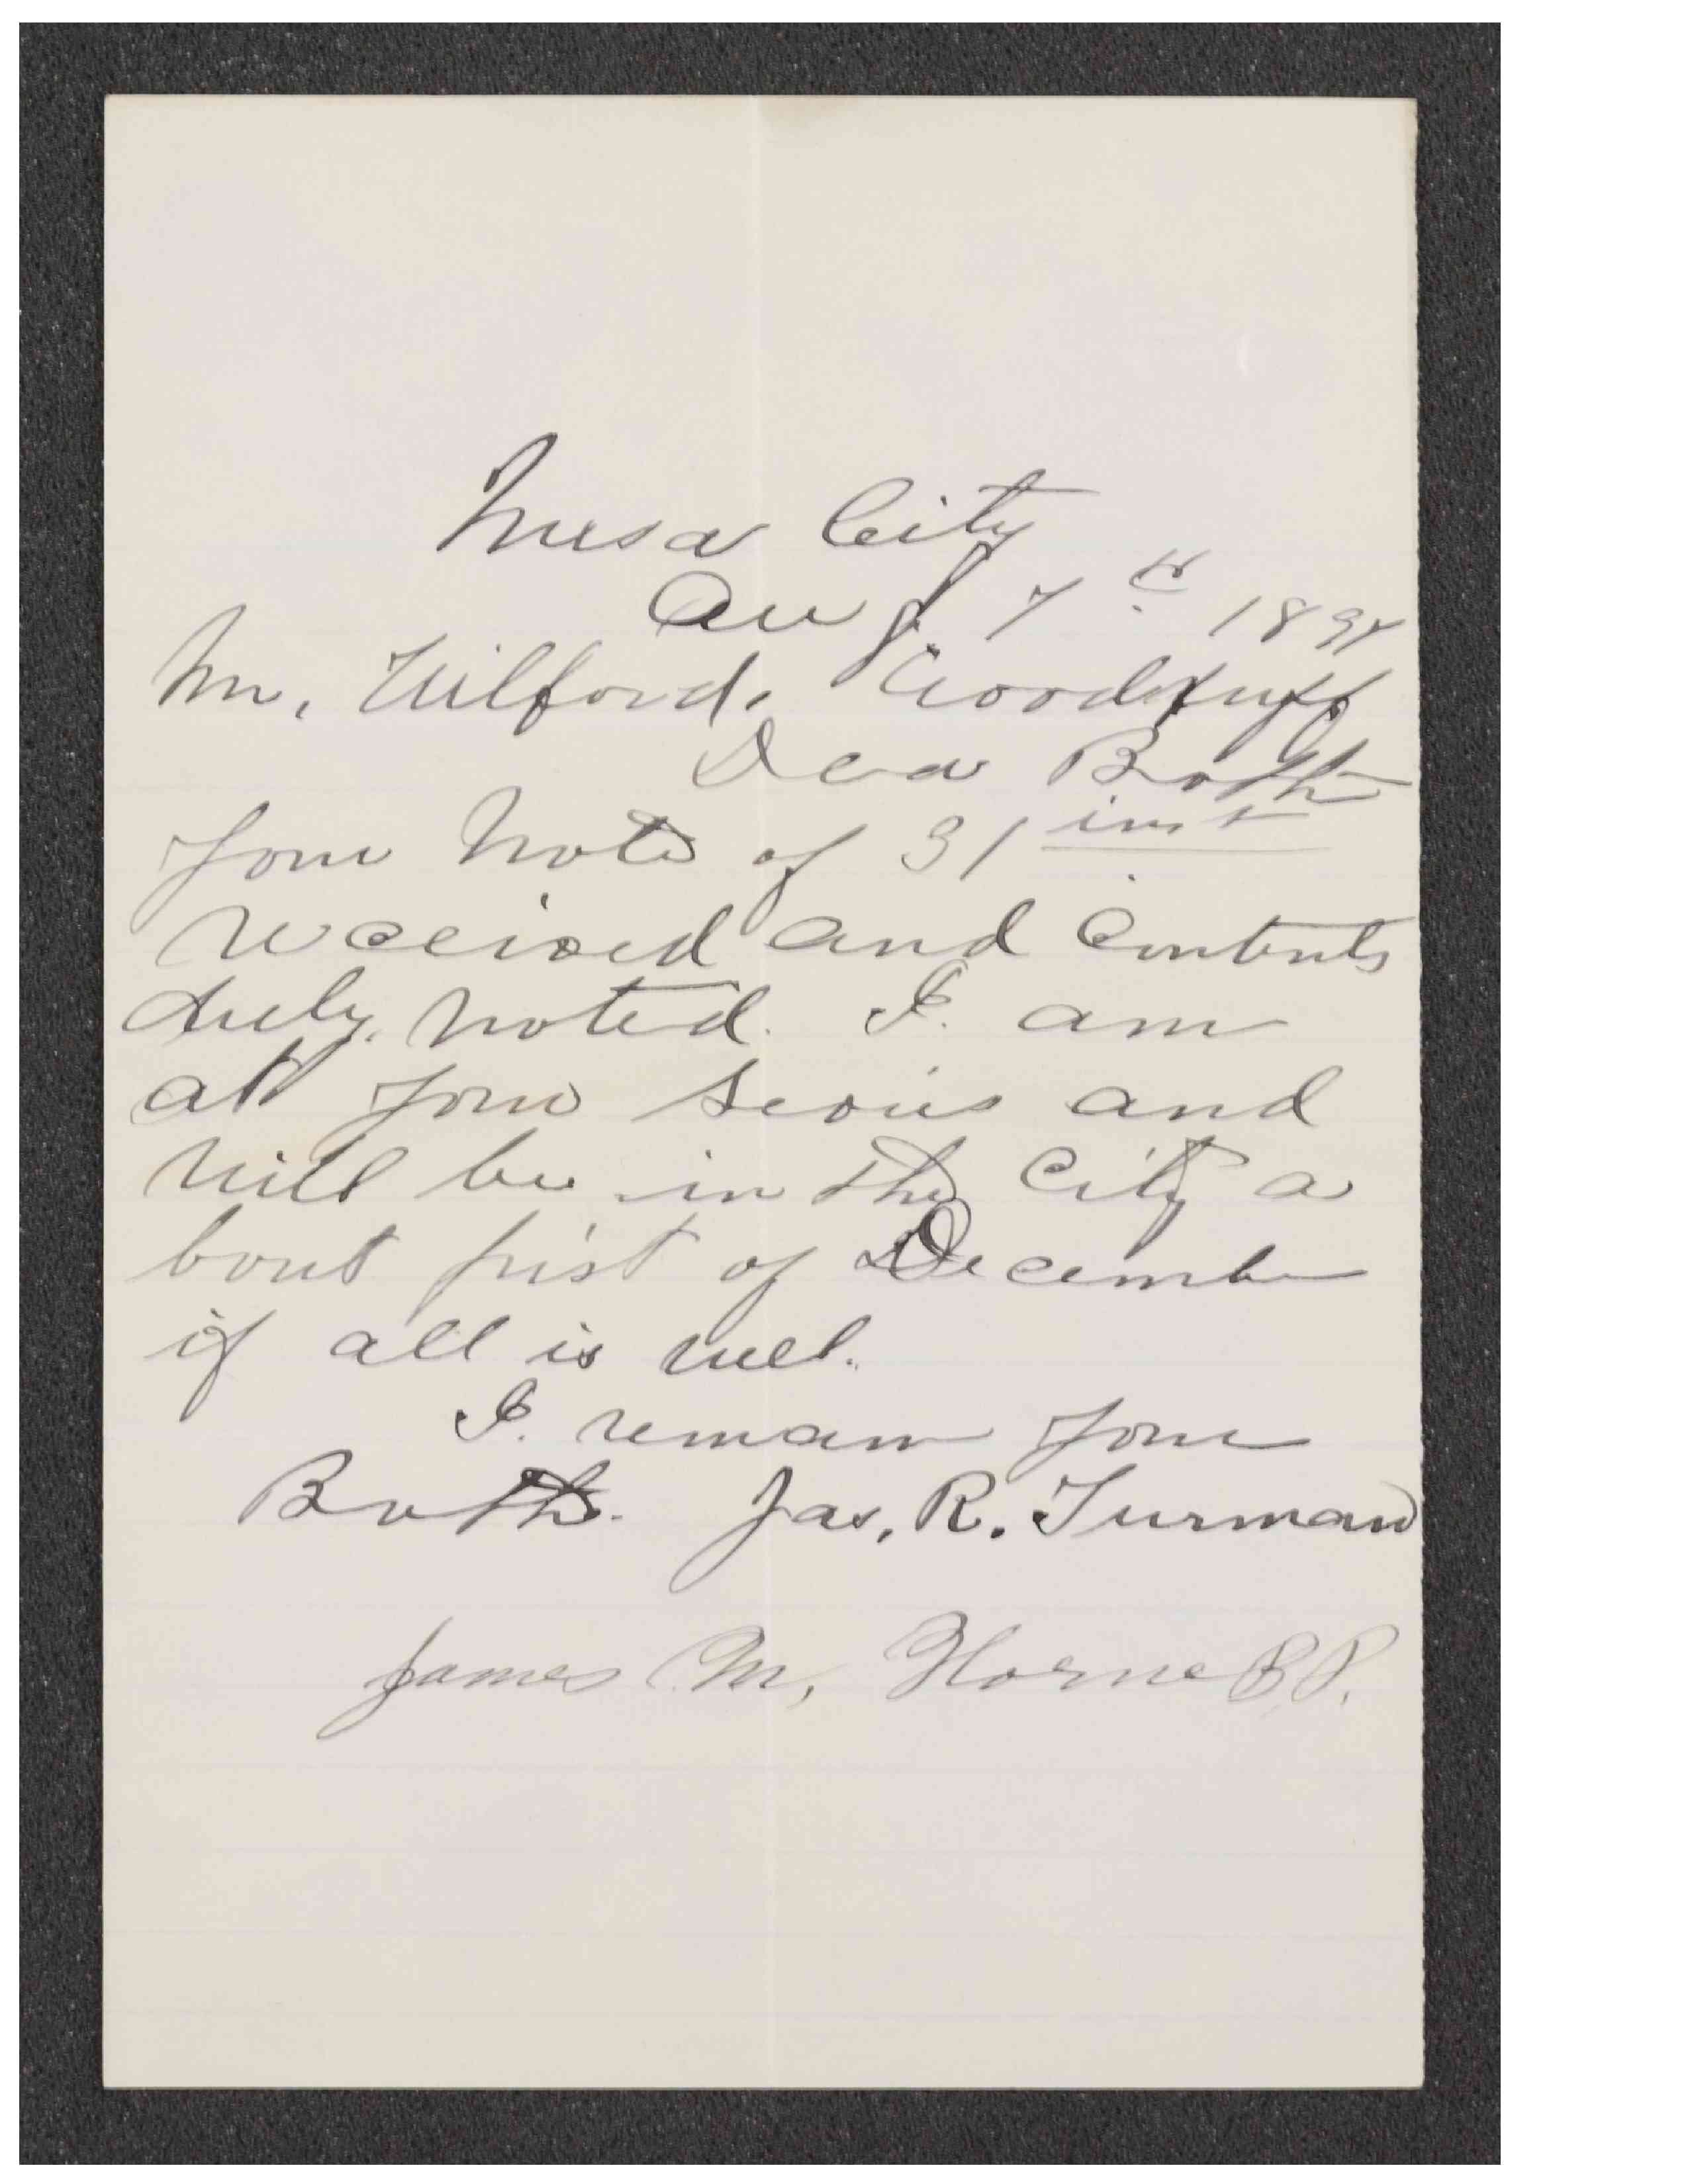 Mesa City
Aug. 7th 1894
Mr. Wilford. Woodruff
Dear Broth
Your Note of 31 inst
received and contents
duly. noted. I. am
at your servis and
will be in the City a
bout first of December
if all is well.
I. remain your
Broth. Jas. R. Turman
James M. Horne B.P.